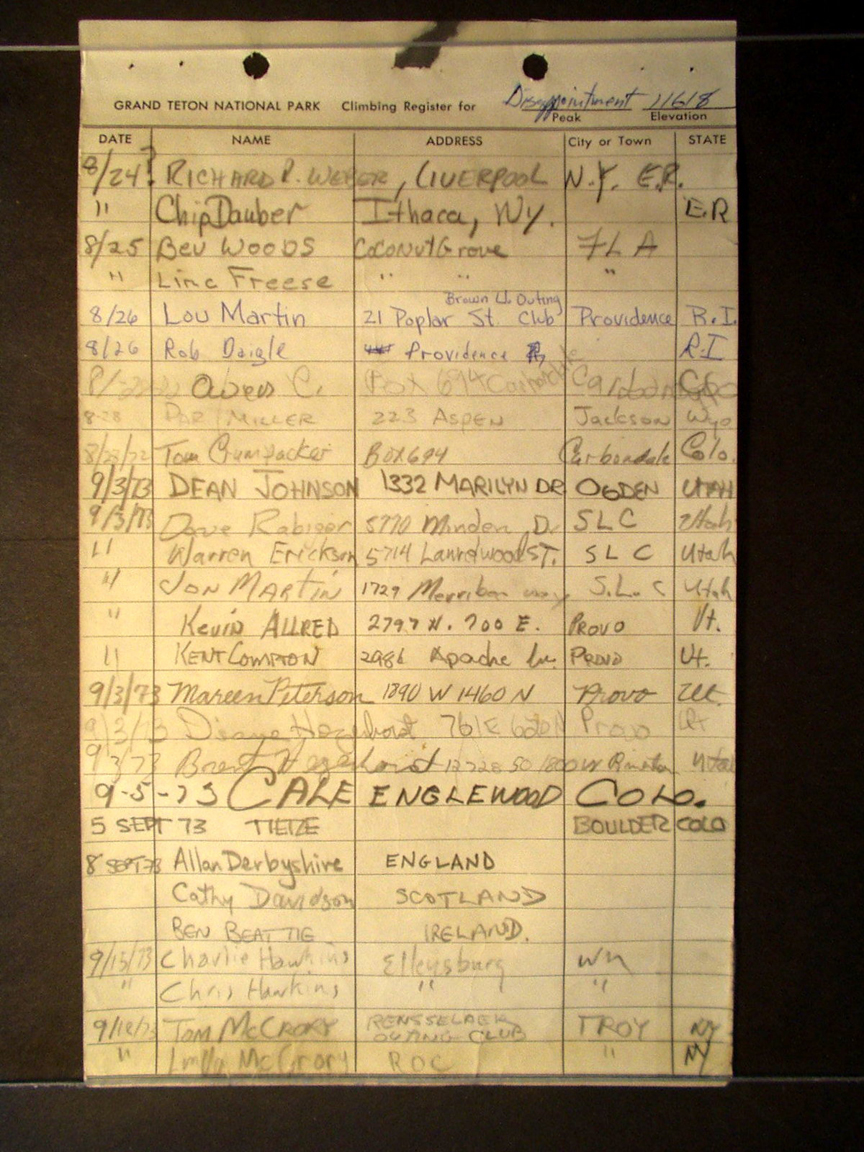 Disappointment 11618
GRAND TETON NATIONAL PARK Climbing Register for Peak Elevation
DATE NAME ADDRESS City or Town STATE
8/24? RICHARD P. WEBER, LIVERPOOL N.Y. E.R.
" Chip Dauber Ithaca, NY. E.R
8/25 Bev WOODS COCONUT Grove FLA
" Linc Freese " " "
Brown U. Outing
8/26 Lou Martin 21 Poplar St. Club Providence R.I.
8/26 Rob Daigle Providence R.I
Owen C. Box 694 Carbondale
8-28 MILLER 223 ASPEN Jackson Wyo
8/28/72 Tom Crumpacker BOX 694 Carbondale Colo.
9/3/73 DEAN JOHNSON 1332 MARILYN DR OGDEN UTAH
9/3/73 Dave Rabiger 5770 Minden D. SLC Utah
" Warren Erickson 5714 Laurelwood ST. SLC Utah
" JON MARTIN 1729 way S.L.C Utah
" Kevin ALLRED 2797 N. 700 E. PROVO Ut.
" KENT COMPTON 2986 Apache Ln. PROVO Ut.
9/3/73 Mareen Peterson 1890 W 1460 N Provo Ut.
9/3/73 Diane Hegelhorst 761E 620N Provo Ut
9/3/73 Brent Hegelhorst 12728 SO 1800 W Utah
9-5-73 CALE ENGLEWOOD COLO.
5 SEPT 73 TIETZE BOULDER COLO
8 SEPT 73 Allan Derbyshire ENGLAND
Cathy Davidson SCOTLAND
BEN BEATTIE IRELAND.
9/15/73 Charlie Hawkins Ellensburg Wn
" Chris Hawkins " " "
9/16/73 TOM McCRORY RENSSELAER TROY NY
OUTING CLUB
" McCrory ROC " NY